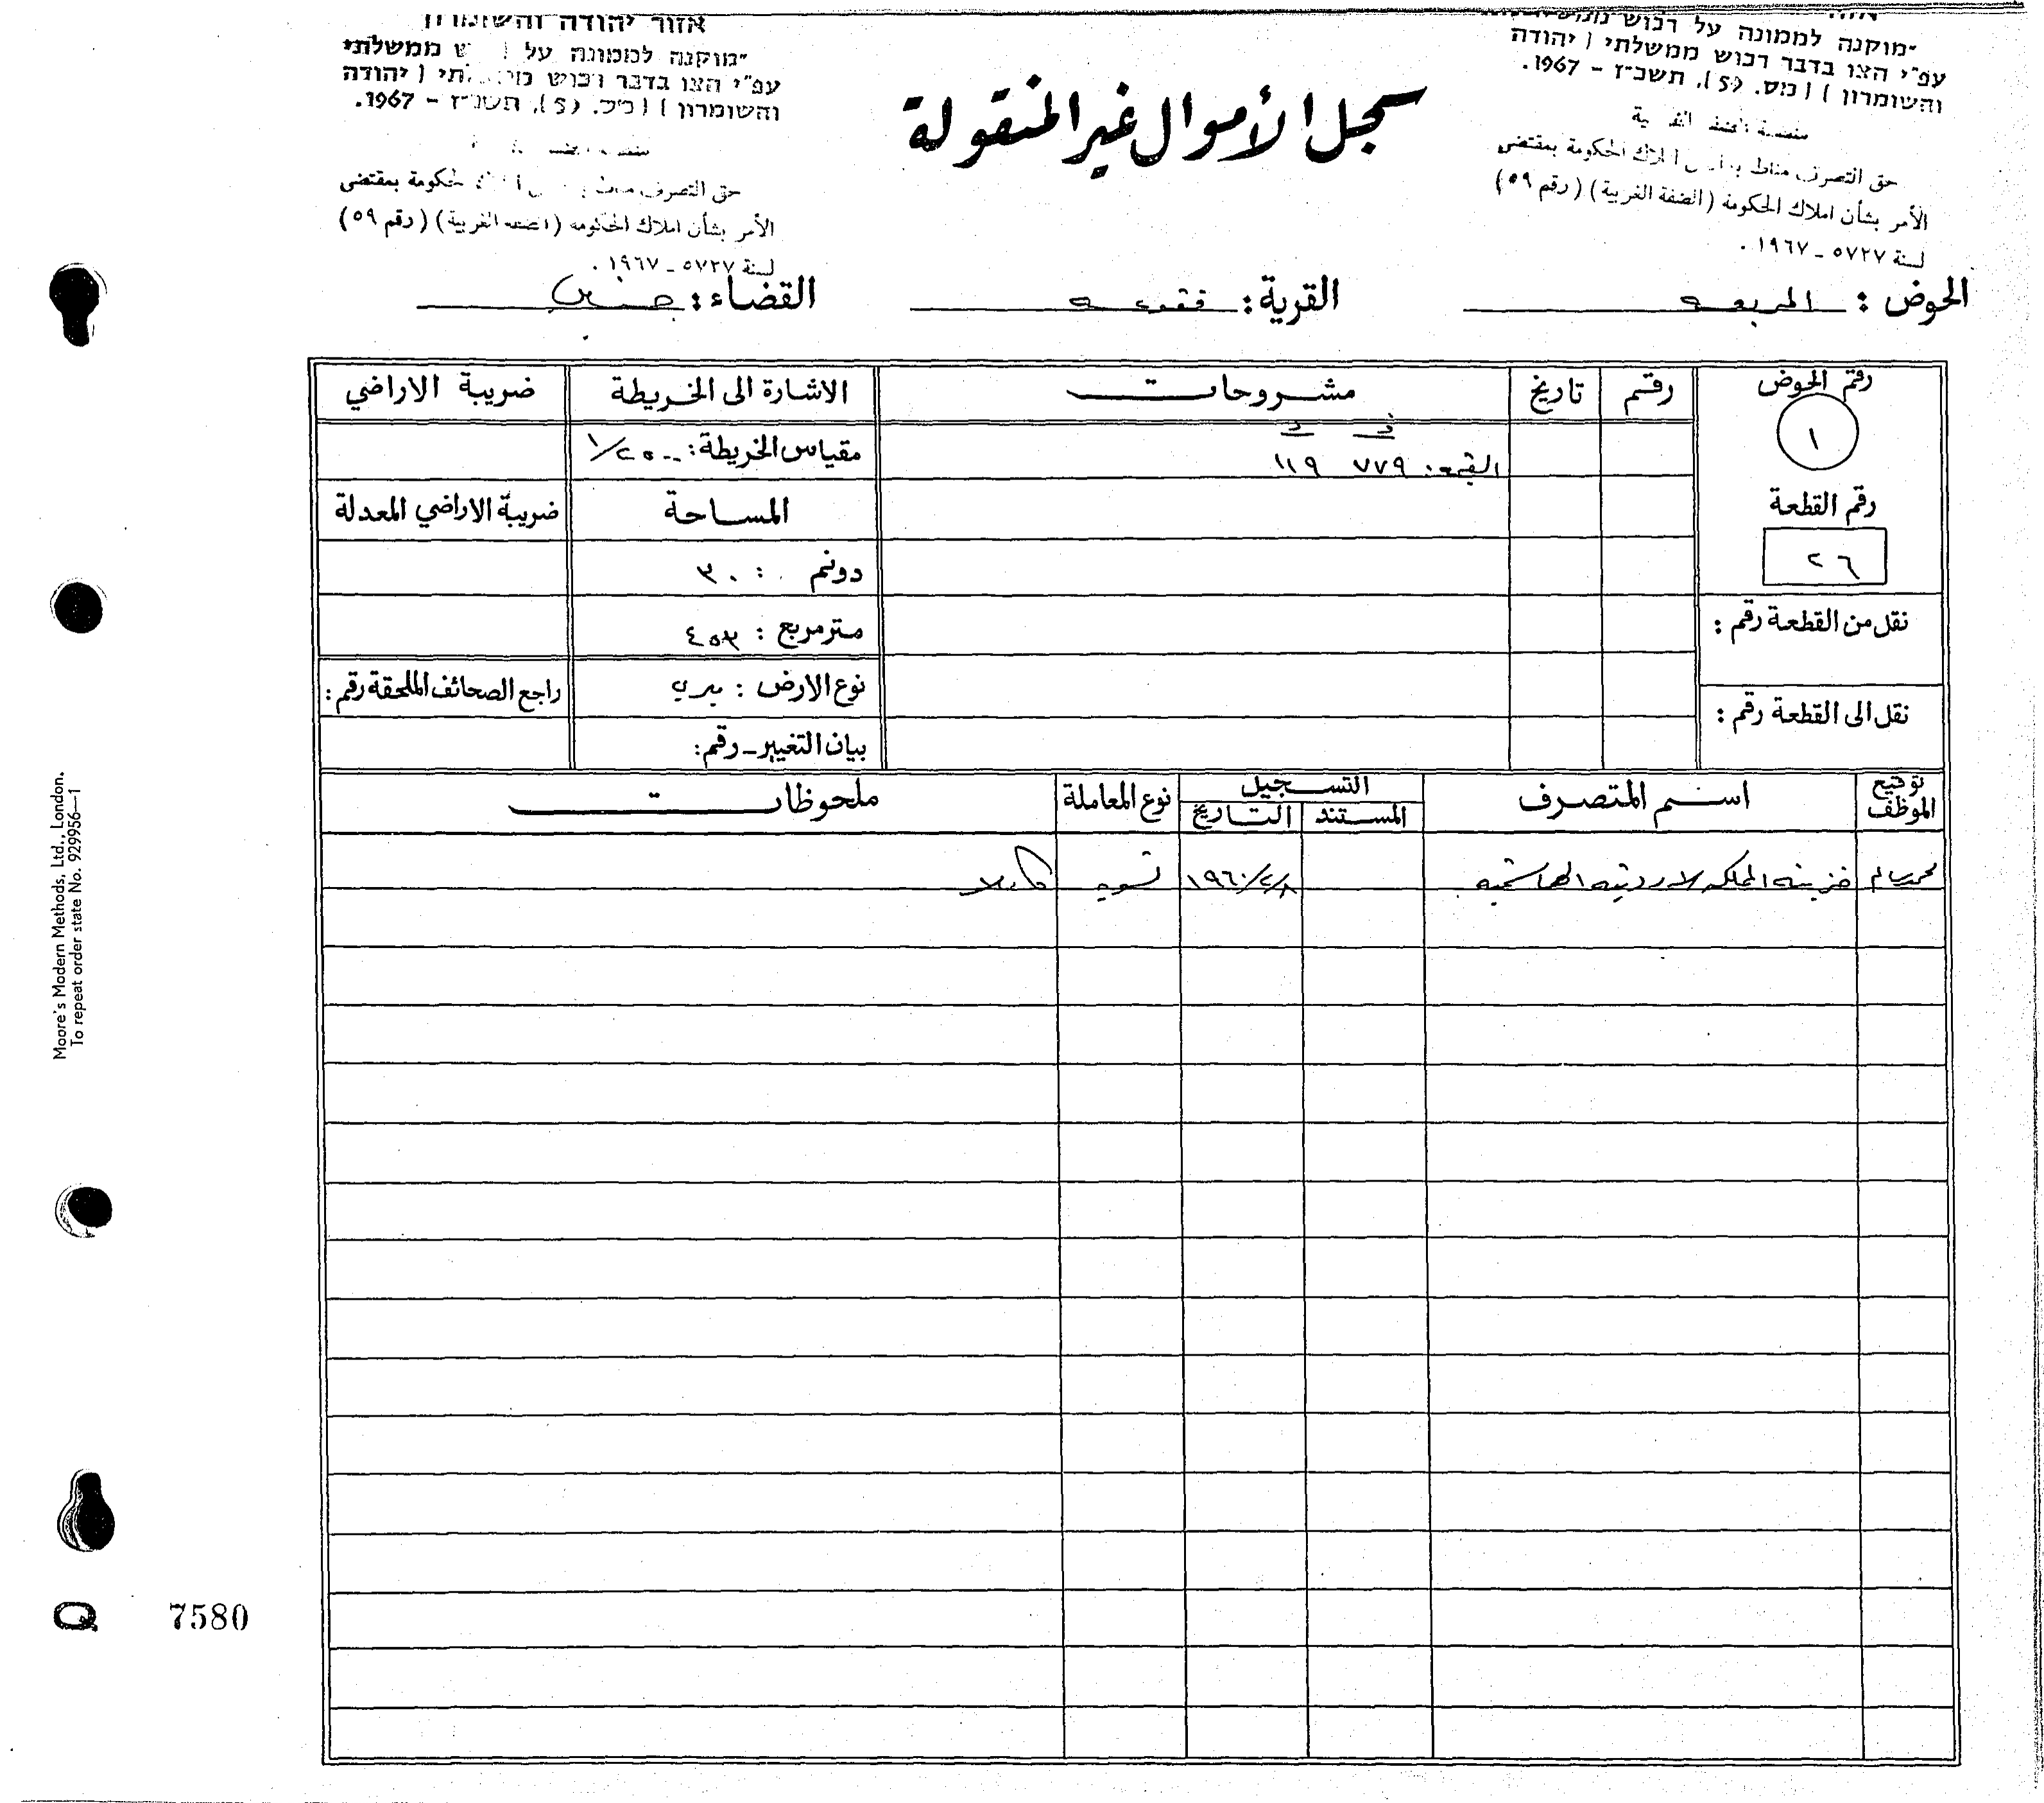 אזור יהודה והשומרון
"מוקנה לממונה על רכוש ממשלתי
עפ"י הצו בדבר רכוש ממשלתי (יהודה
והשומרון) (מס. 59), תשכ"ז - 1967.
حق التصرف مناط املاك الحكومة بمقتضى
الأمر بشأن املاك الحكومة (الضفة الغربية) (رقم ٥٩)
لسنة ٥٧٢٧ - ١٩٦٧ .
سجل الأموال غير المنقولة
"מוקנה לממונה על רכוש ממשלתי
עפ"י הצו בדבר רכוש ממשלתי (יהודה
והשומרון) (מס. 59), תשכ"ז - 1967.
منطقة الضفة الغربية
حق التصرف مناط املاك الحكومة بمقتضى
الأمر بشأن املاك الحكومة (الضفة الغربية) (رقم ٥٩)
لسنة ٥٧٢٧ - ١٩٦٧ .
الحوض : المربعه القرية: فقوعه القضاء: جنين
رقم الحوض رقم تاريخ مشروحات الاشارة الى الخريطة ضريبة الاراضي
١
ف د
القيمة: ٧٧٩ ١١٩
مقياس الخريطة: ١/٢٥٠٠
رقم القطعة المساحة ضريبة الاراضي المعدلة
٢٦
دونم : ٣٠
نقل من القطعة رقم :
متر مربع : ٤٥٣
نوع الارض : ميري راجع الصحائف الملحقة رقم :
نقل الى القطعة رقم :
بيان التغيير - رقم:
توقيع الموظف اسم المتصرف التسجيل نوع المعاملة ملحوظات
المستند التاريخ
محمد سالم خزينة المملكه الاردنيه الهاشميه ١٩٦٠/٢/٨ تسويه كاملا
Moore's Modern Methods, Ltd., London.
To repeat order state No. 929956—1
Q 7580